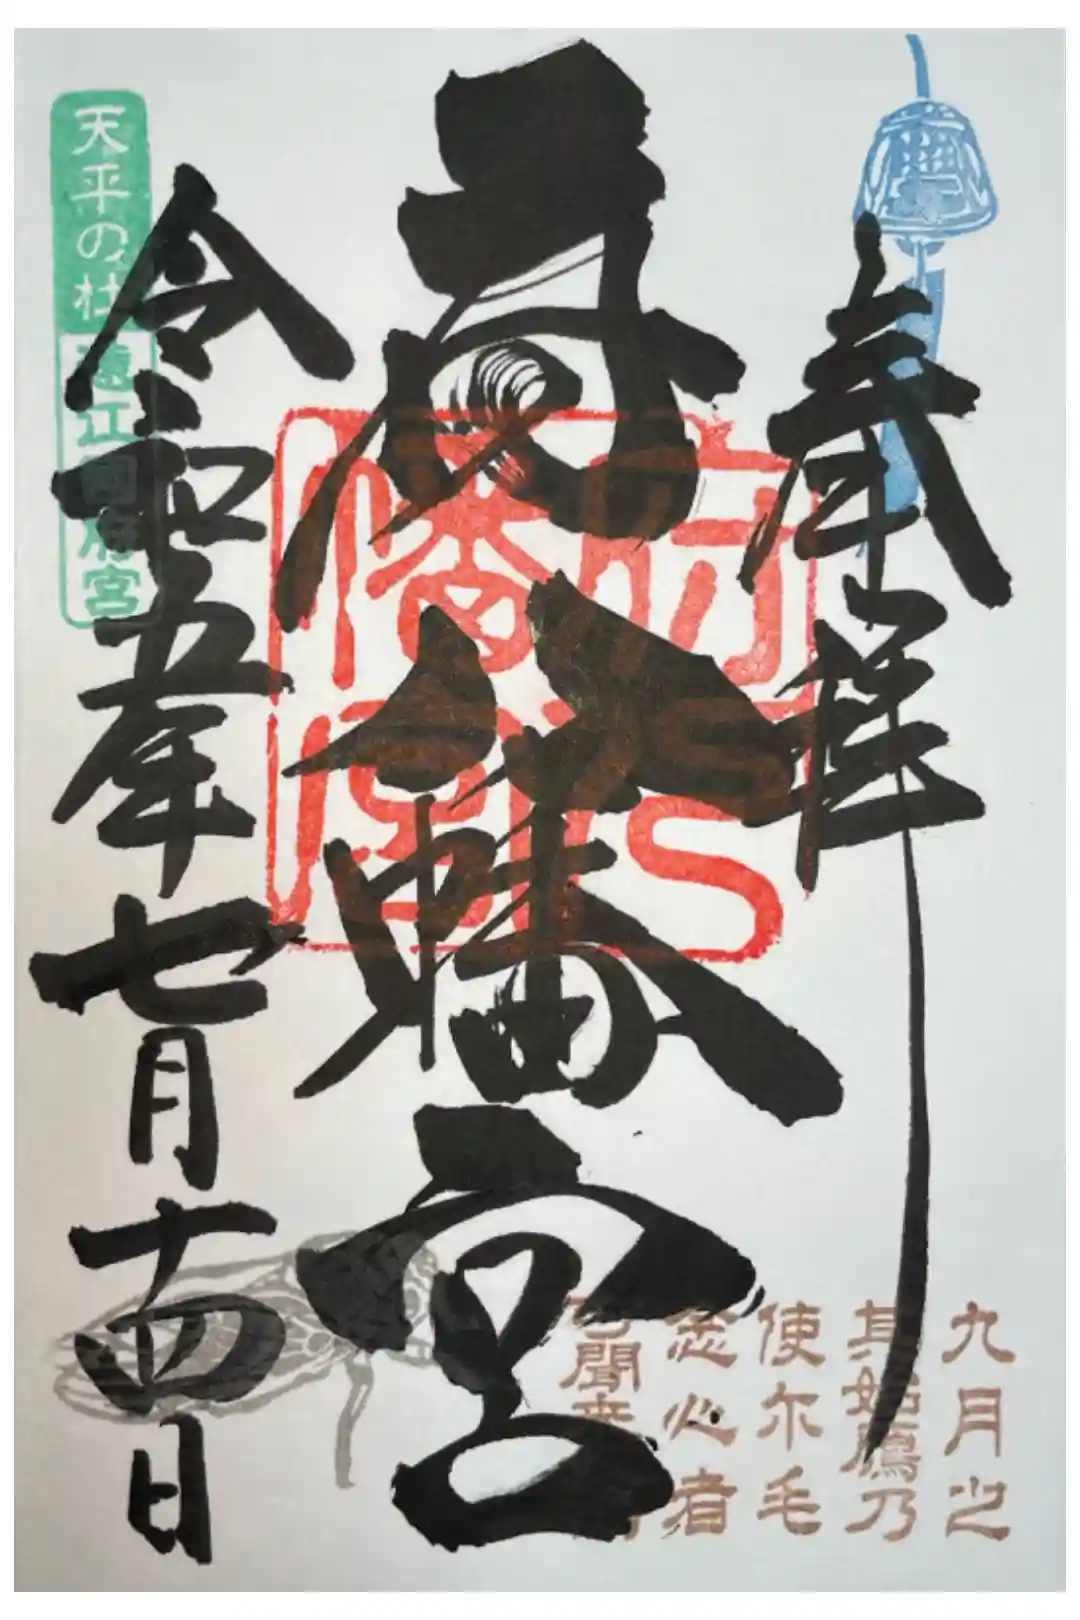 奉拝
府八幡宮
令和五年七月十四日
天平の杜
遠江國府宮
府八幡宮
九月之
其始鴈乃
使尓毛
念心者
可聞来